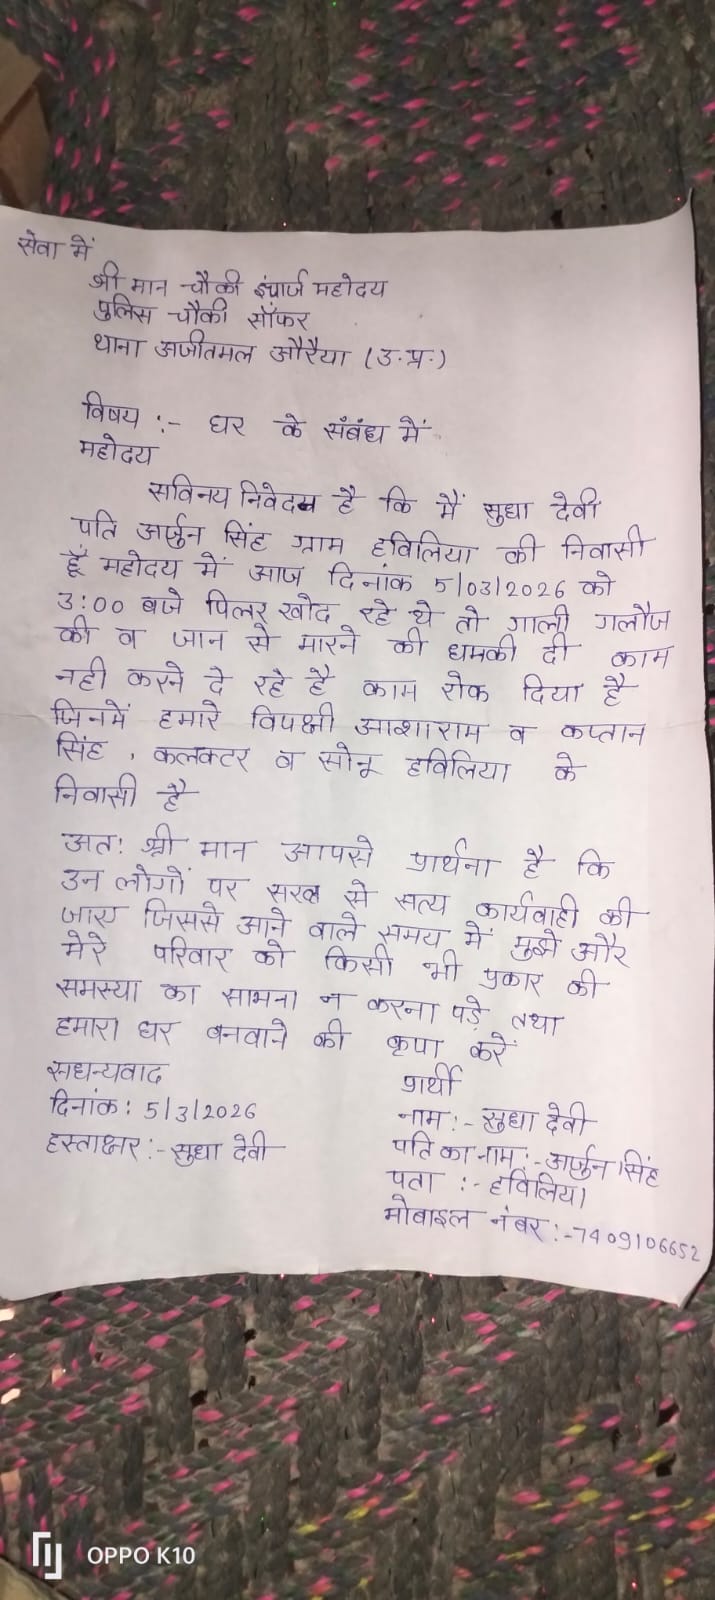 सेवा में
श्री मान चौकी इंचार्ज महोदय
पुलिस चौकी सॉफर
थाना अजीतमल औरैया (उ.प्र.)
विषय :- घर के संबंध में
महोदय
सविनय निवेदन है कि मैं सुधा देवी
पति अर्जुन सिंह ग्राम हविलिया की निवासी
हूँ महोदय में आज दिनांक 5/03/2026 को
3:00 बजे पिलर खोद रहे थे तो गाली गलौज
की व जान से मारने की धमकी दी काम
नही करने दे रहे है काम रोक दिया है
जिनमें हमारे विपक्षी आशाराम व कप्तान
सिंह , कलक्टर व सोनू हविलिया के
निवासी है
अतः श्री मान आपसे प्रार्थना है कि
उन लोगों पर से सत्य कार्यवाही की
जाए जिससे आने वाले समय में मुझे और
मेरे परिवार को किसी भी प्रकार की
समस्या का सामना न करना पड़े तथा
हमारा घर बनवाने की कृपा करें
सधन्यवाद
दिनांक: 5/3/2026
हस्ताक्षर :- सुधा देवी
प्रार्थी
नाम :- सुधा देवी
पति का नाम :- अर्जुन सिंह
पता :- हविलिया
मोबाइल नंबर :- 7409106652
OPPO K10